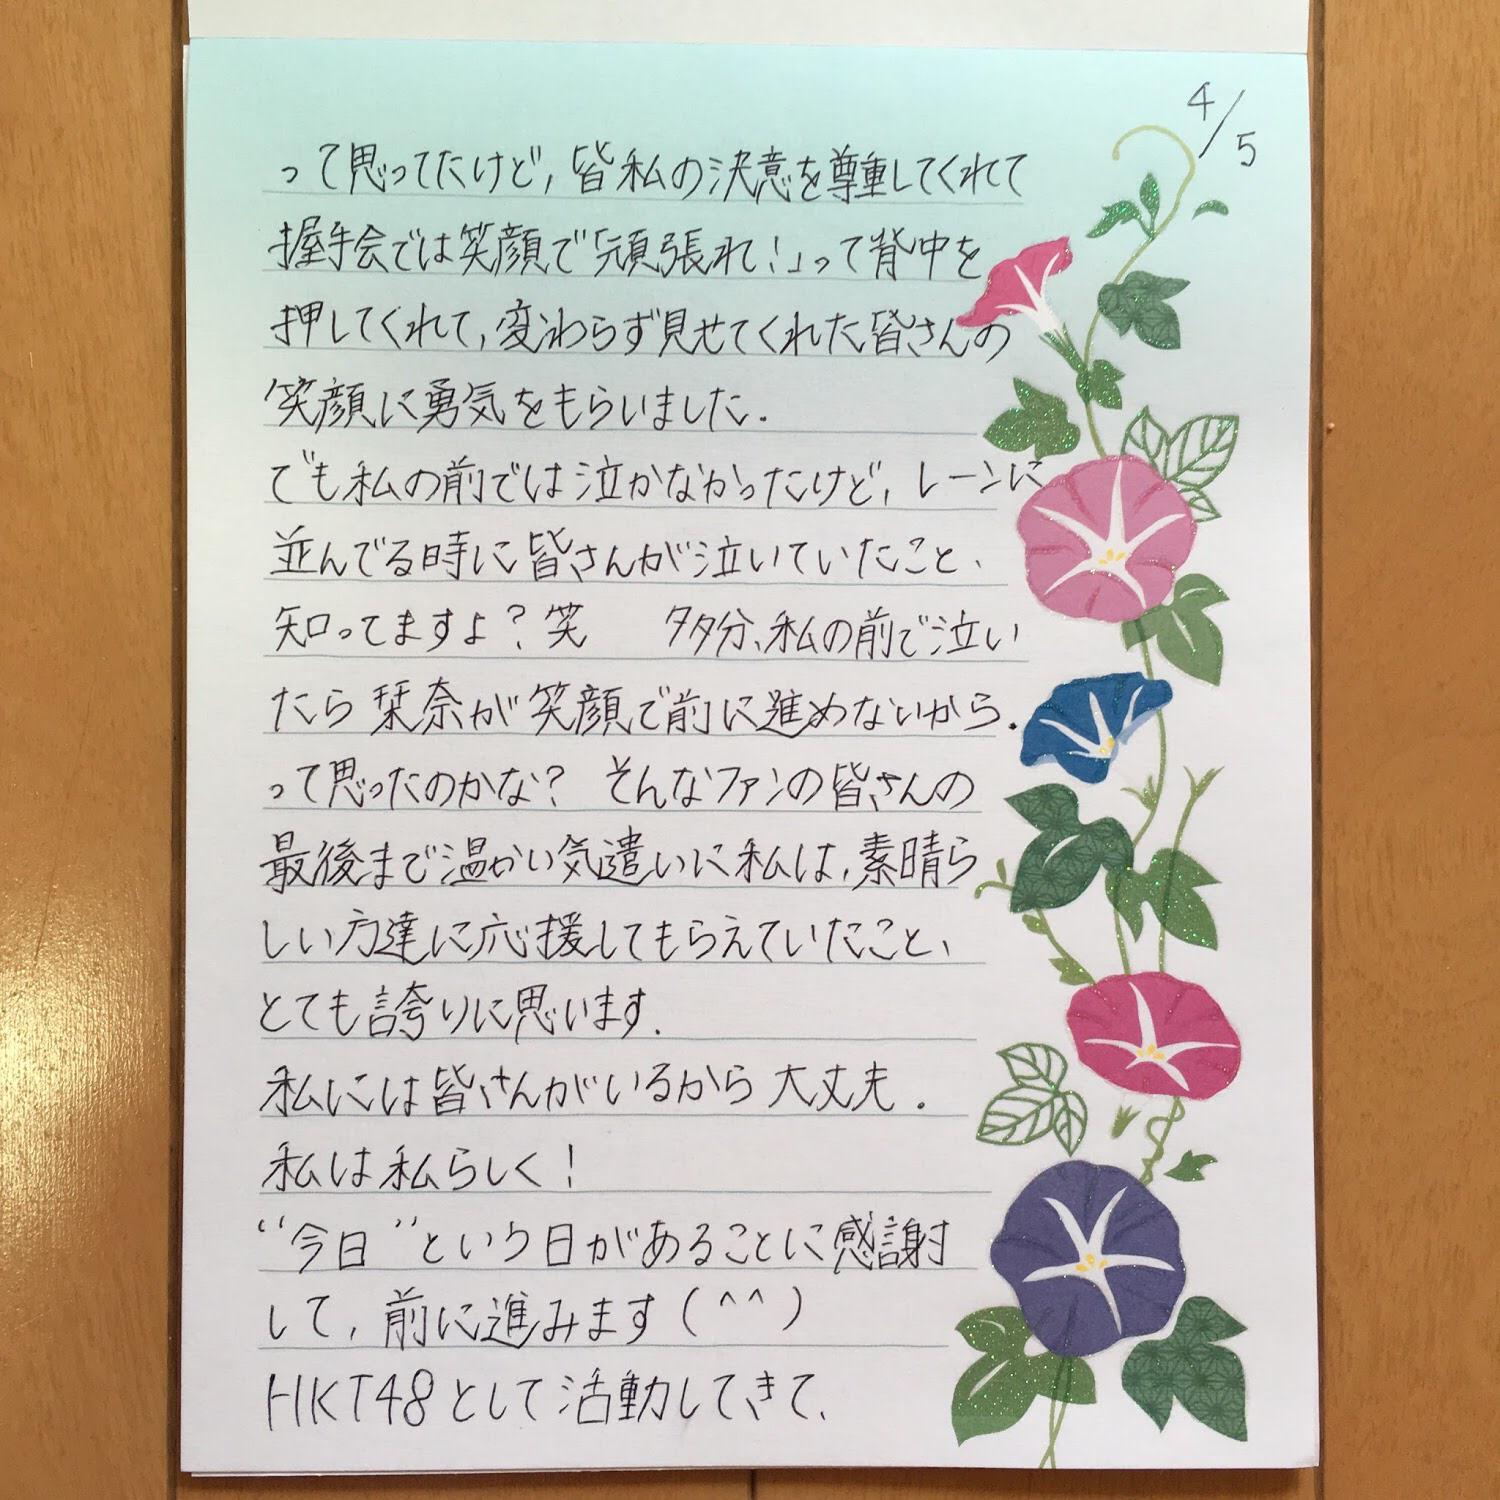 4/5
って思ってたけど, 皆私の決意を尊重してくれて
握手会では笑顔で「頑張れ!」って背中を
押してくれて, 変わらず見せてくれた皆さんの
笑顔に勇気をもらいました.
でも私の前では泣かなかったけど, レーンに
並んでる時に皆さんが泣いていたこと、
知ってますよ?笑　タタ分、私の前で泣い
たら栞奈が笑顔で前に進めないから.
って思ったのかな?　そんなファンの皆さんの
最後まで温かい気遣いに私は, 素晴ら
しい方達に応援してもらえていたこと、
とても誇りに思います.
私には皆さんがいるから大丈夫.
私は私らしく!
“今日”という日があることに感謝
して, 前に進みます(^^)
HKT48として活動してきて、